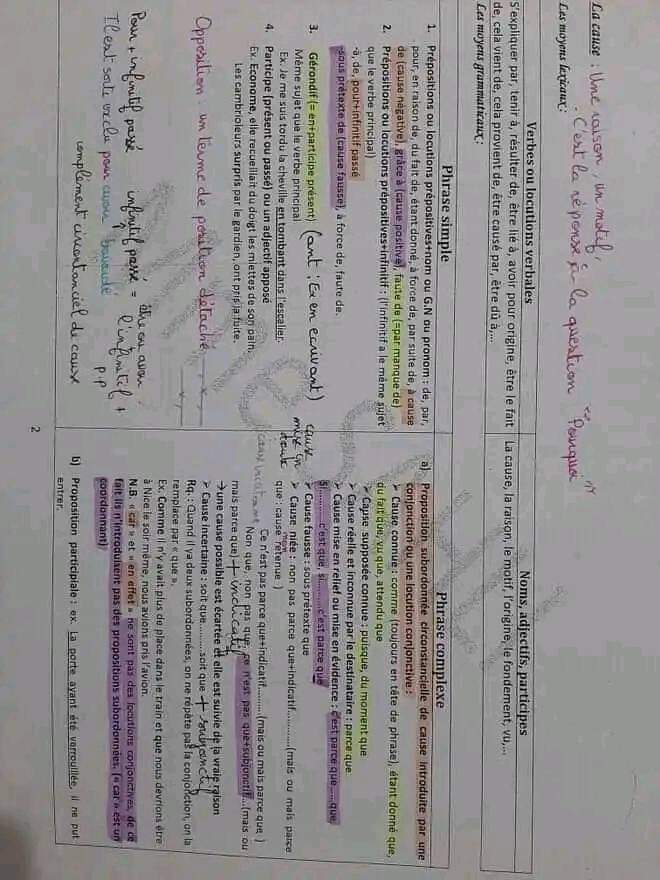 La cause : Une raison, un motif
. C'est la réponse à la question "Pourquoi"
Les moyens lexicaux :
Verbes ou locutions verbales
Noms, adjectifs, participes
S'expliquer par, tenir à, résulter de, être lié à, avoir pour origine, être le fait
de, cela vient de, cela provient de, être causé par, être dû à,...
La cause, la raison, le motif, l'origine, le fondement, vu,...
Les moyens grammaticaux :
Phrase simple
1. Prépositions ou locutions prépositives+nom ou G.N ou pronom : de, par,
pour, en raison de, du fait de, étant donné, à force de, par suite de, à cause
de (cause négative), grâce à (cause positive), faute de (=par manque de)
2. Prépositions ou locutions prépositives+infinitif : (l'infinitif a le même sujet
que le verbe principal)
-à, de, pour+infinitif passé
-sous prétexte de (cause fausse), à force de, faute de.
3. Gérondif (= en+participe présent) (ant : Ex en ecrivant)
Même sujet que le verbe principal
Ex. Je me suis tordu la cheville en tombant dans l'escalier.
4. Participe (présent ou passé) ou un adjectif apposé
Ex. Econome, elle recueillait du doigt les miettes de son pain.
Les cambrioleurs surpris par le gardien, ont pris la fuite.
Opposition : un terme de position détaché
Pour + infinitif passé
infinitif passé = être ou avoir
l'infinitif +
p.p
Il est sorti pour avoir
complément circonstanciel de caus
Phrase complexe
a) Proposition subordonnée circonstancielle de cause introduite par une
conjonction ou une locution conjonctive :
➢ Cause connue : comme (toujours en tête de phrase), étant donné que,
du fait que, vu que, attendu que
➢ Cause supposée connue : puisque, du moment que
➢ Cause réelle et inconnue par le destinataire : parce que
➢ Cause mise en relief ou mise en évidence : c'est parce que......que
si..........c'est que, si..........c'est parce que
➢ Cause fausse : sous prétexte que
caus
mise en
doute
➢ Cause niée : non pas parce que+indicatif..............(mais ou mais parce
que : cause retenue )
Ce n'est pas parce que+indicatif..........(mais ou mais parce que )
Non que, non pas que, ce n'est pas que+subjonctif....(mais ou
mais parce que) + indicatif
→une cause possible est écartée et elle est suivie de la vraie raison
➢ Cause incertaine : soit que..........soit que + subjonctif
Rq. : Quand il ya deux subordonnées, on ne répète pas la conjonction, on la
remplace par « que ».
Ex. Comme il n'y avait plus de place dans le train et que nous devrions être
à Nice le soir même, nous avions pris l'avion.
N.B. « car » et « en effet » ne sont pas des locutions conjonctives, de ce
fait ils n'introduisent pas des propositions subordonnées. (« car » est un
coordonnant)
b) Proposition participiale : ex. La porte ayant été verrouillée, il ne put
entrer.
2